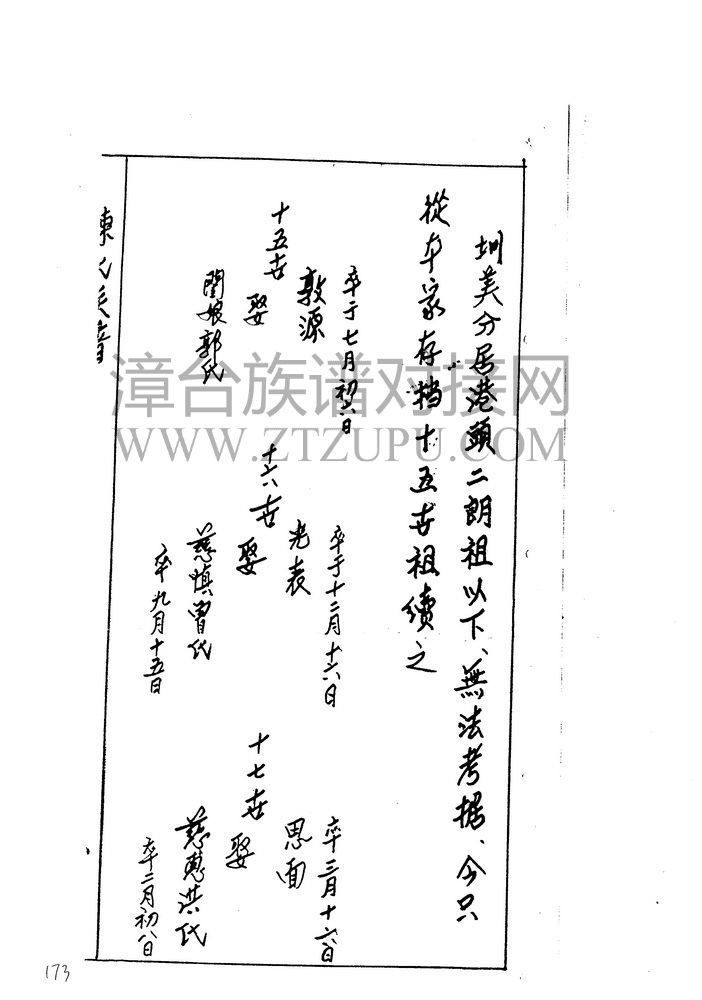 圳美分居港頭二朗祖以下、無法考据、今只
從本家存档十五世祖續之
卒于七月初六日
十五世 敦源
娶
閨娘郭氏
卒于十二月十六日
十六世 光表
娶
慈慎曾氏
卒九月十五日
卒三月十六日
十七世 思面
娶
慈惠洪氏
卒二月初八日
陳氏族譜
漳台族谱对接网
WWW.ZTZUPU.COM
173